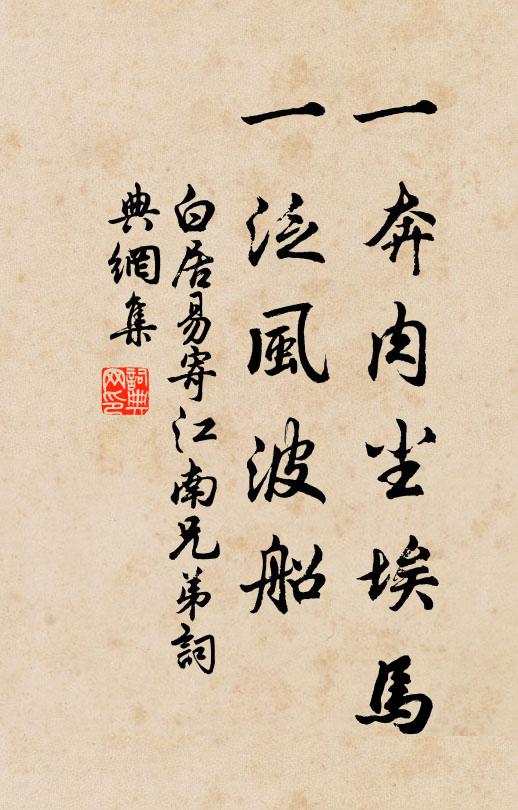 一奔肉尘埃馬
一泛風波船
白居易寄江南兄弟詞
典網集
詞典网印